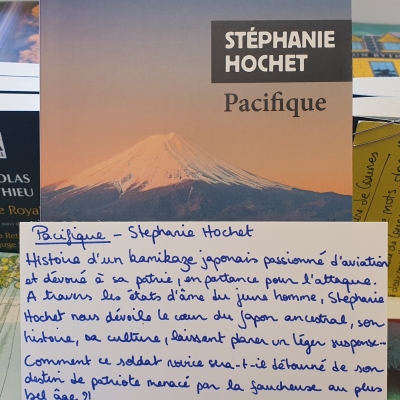 STÉPHANIE
HOCHET
Pacifique
OLAS
THIEU
e Royal
Pacifique - Stephanie Hochet
Histoire d'un kamikaze japonais passionné d'aviation
et dévoué à sa patrie, en partance pour l'attaque.
A travers les états d'âme du jeune homme, Stephanie
Hochet nous dévoile le cœur du Japon ancestral, son
histoire, sa culture, laissent planer un léger suspense...
Comment ce soldat novice sera-t-il détourné de son
destin de patriote menacé par la faucheuse au plus
bel âge ?!